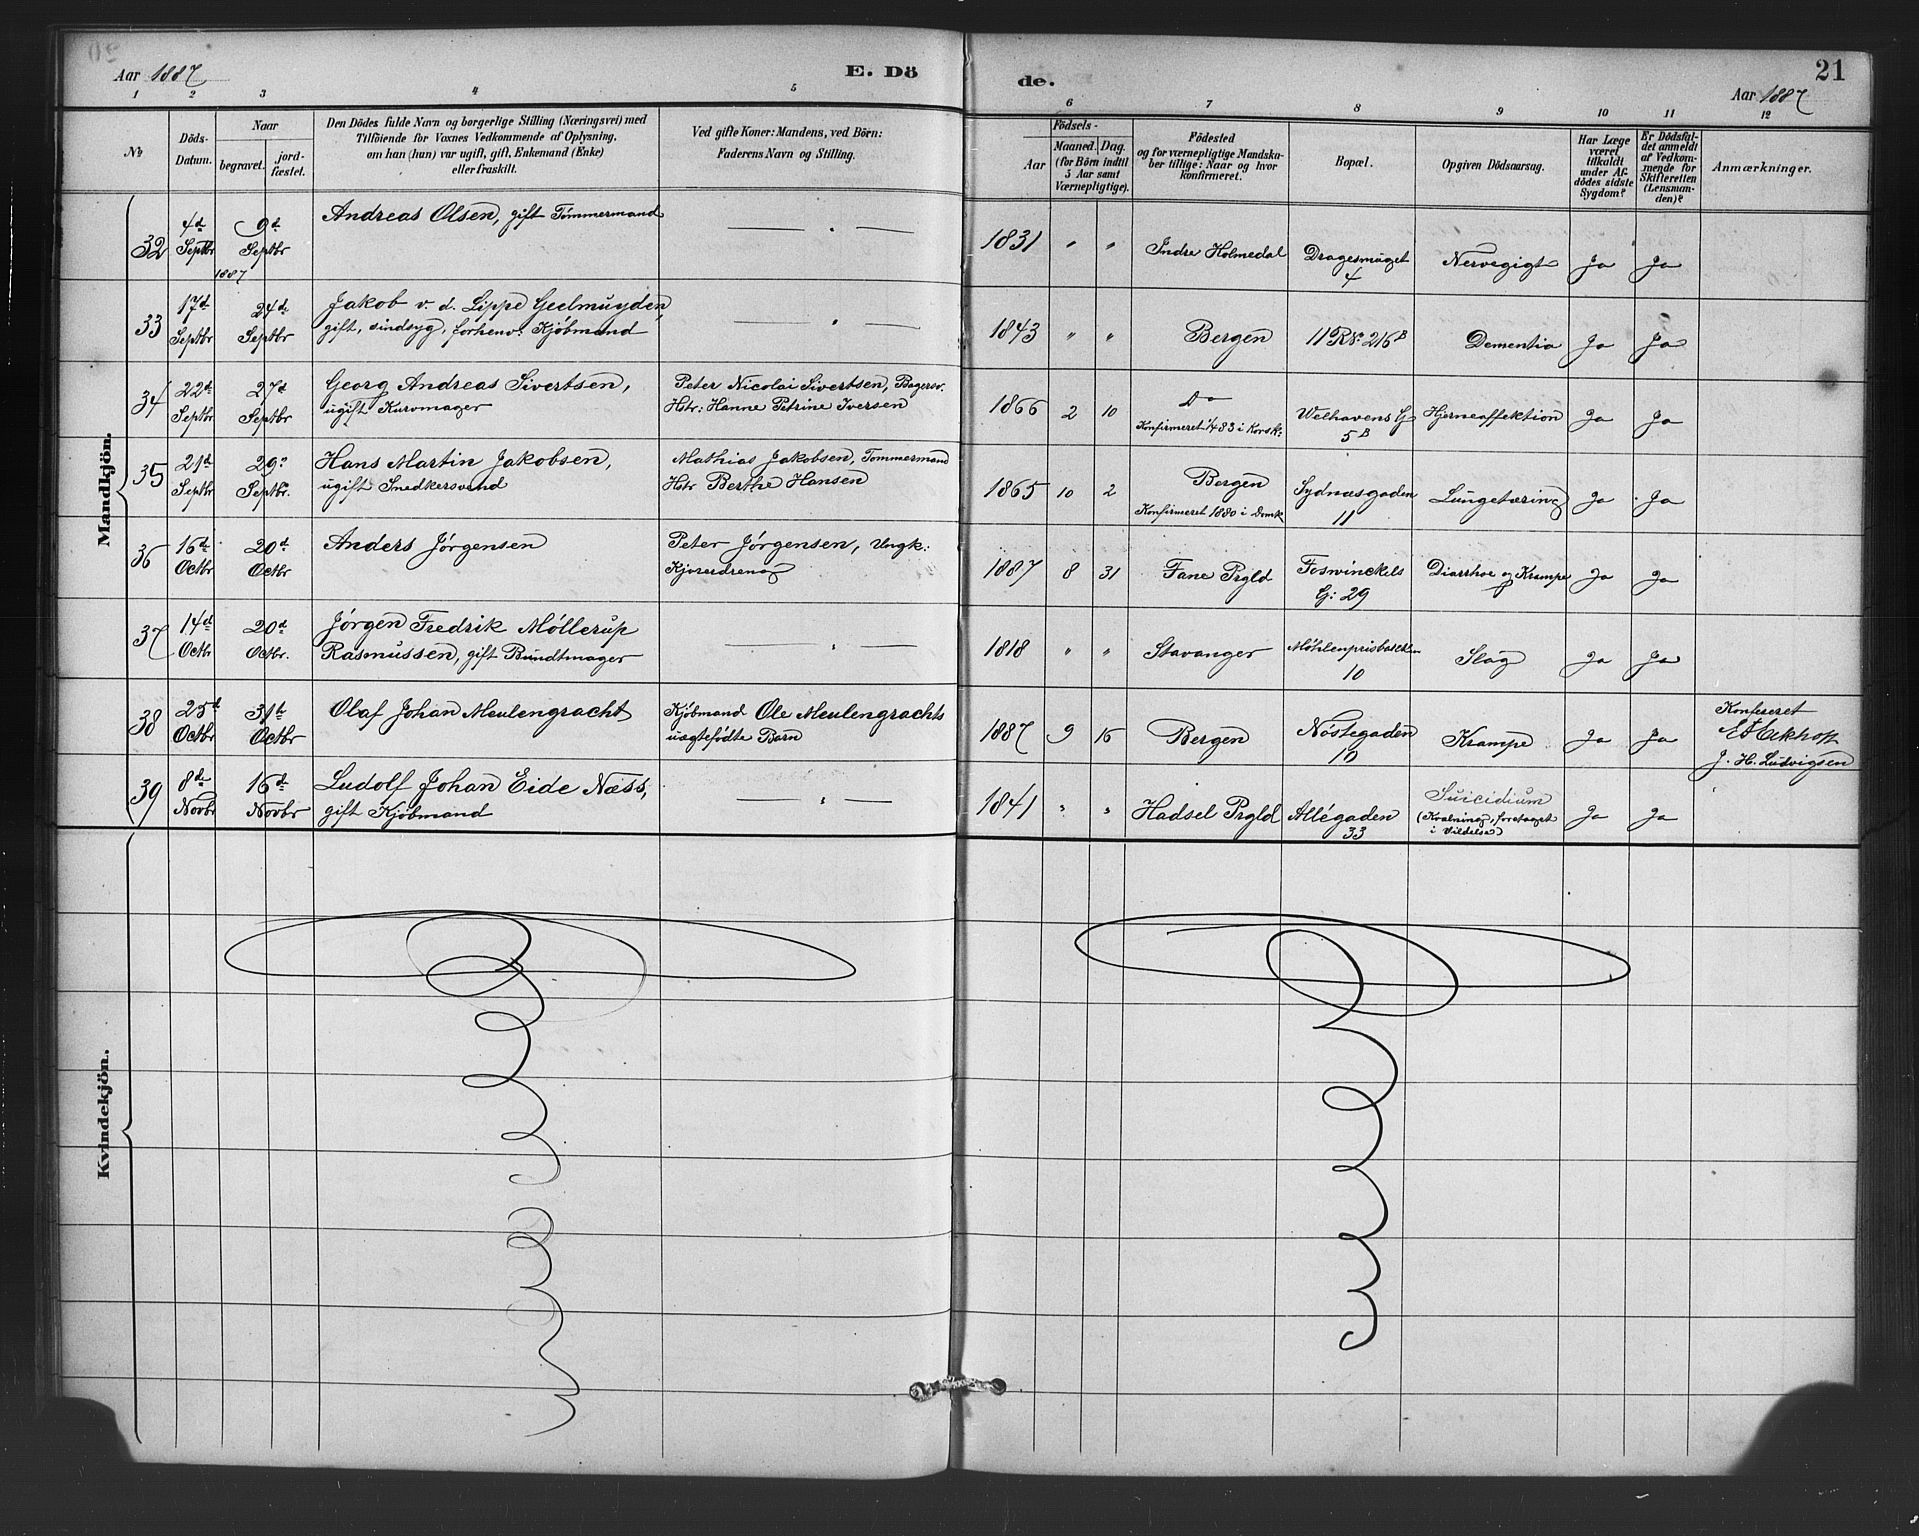 Aar 1887
E. Dö
de.
21
Aar 1887
1 2 3 4 5 6 7 8 9 10 11 12
№
Döds-
Datum.
Naar
begravet.
jord-
fæstet.
Den Dödes fulde Navn og borgerlige Stilling (Næringsvei) med
Tilföiende for Voxnes Vedkommende af Oplysning,
om han (hun) var ugift, gift, Enkemand (Enke)
eller fraskilt.
Ved gifte Koner: Mandens, ved Börn:
Faderens Navn og Stilling.
Födsels-
Aar
Maaned.
Dag.
(for Börn indtil
5 Aar samt
Værnepligtige).
Födested
og for værnepligtige Mandska-
ber tillige: Naar og hvor
konfirmeret.
Bopæl.
Opgiven Dödsaarsag.
Har Læge
været
tilkaldt
under Af-
dödes sidste
Sygdom?
Er Dödsfal-
det anmeldt
af Vedkom-
mende for
Skifteretten
(Lensman-
den)?
Anmærkninger.
Mandkjön.
32 4d Septbr 1887 9d Septbr Andreas Olsen, gift Tømmermand — " — 1831 " " Indre Holmedal Dragesmuget 4 Nervegigt Ja Ja
33 17d Septbr 24d Septbr Jakob v. d. Lippe Geelmuyden,
gift, sindsyg, forhenv: Kjøbmand — " — 1843 " " Bergen 11 R№ 216B Dementia Ja Ja
34 22d Septbr 27d Septbr Georg Andreas Sivertsen,
ugift Kurvmager Peter Nicolai Sivertsen, Bagersv.
Hstr: Hanne Petrine Iversen 1866 2 10 Do
Konfirmeret 1/4 83 i Korsk: Welhavens G 5B Hjerneaffektion Ja Ja
35 21d Septbr 29d Septbr. Hans Martin Jakobsen,
ugift Smedkersvend Mathias Jakobsen, Tommermand
Hstr Berthe Hansen 1865 10 2 Bergen
Konfirmeret 1880 i Domk Sydnæsgaden 11 Lungetæring Ja Ja
36 16d Octbr 20d Octbr Anders Jørgensen Peter Jørgensen, Ungk:
Kjøredreng 1887 8 31 Fane Prgld Foswinckels G: 29 Diarrhoe og Krampe Ja Ja
37 14d Octbr 20d Octbr. Jørgen Fredrik Møllerup
Rasmussen, gift Bundtmager — " — 1818 " " Stavanger 10 Slag Ja Ja
38 25d Octbr 31d Octbr Olaf Johan Meulengracht Kjøbmand Ole Meulengrachts
uægtefødte Barn 1887 9 15 Bergen Nøstegaden 10 Krampe Ja Ja Konfereret
J. H. Ludvigsen
39 8d Novbr 16d Novbr Ludolf Johan Eide Næss,
gift Kjøbmand — " — 1841 " " Hadsel Prgld Allégaden 33 Suicidium
(Kvælning, foretaget
i Vildelse) Ja Ja
Kvindekjön.